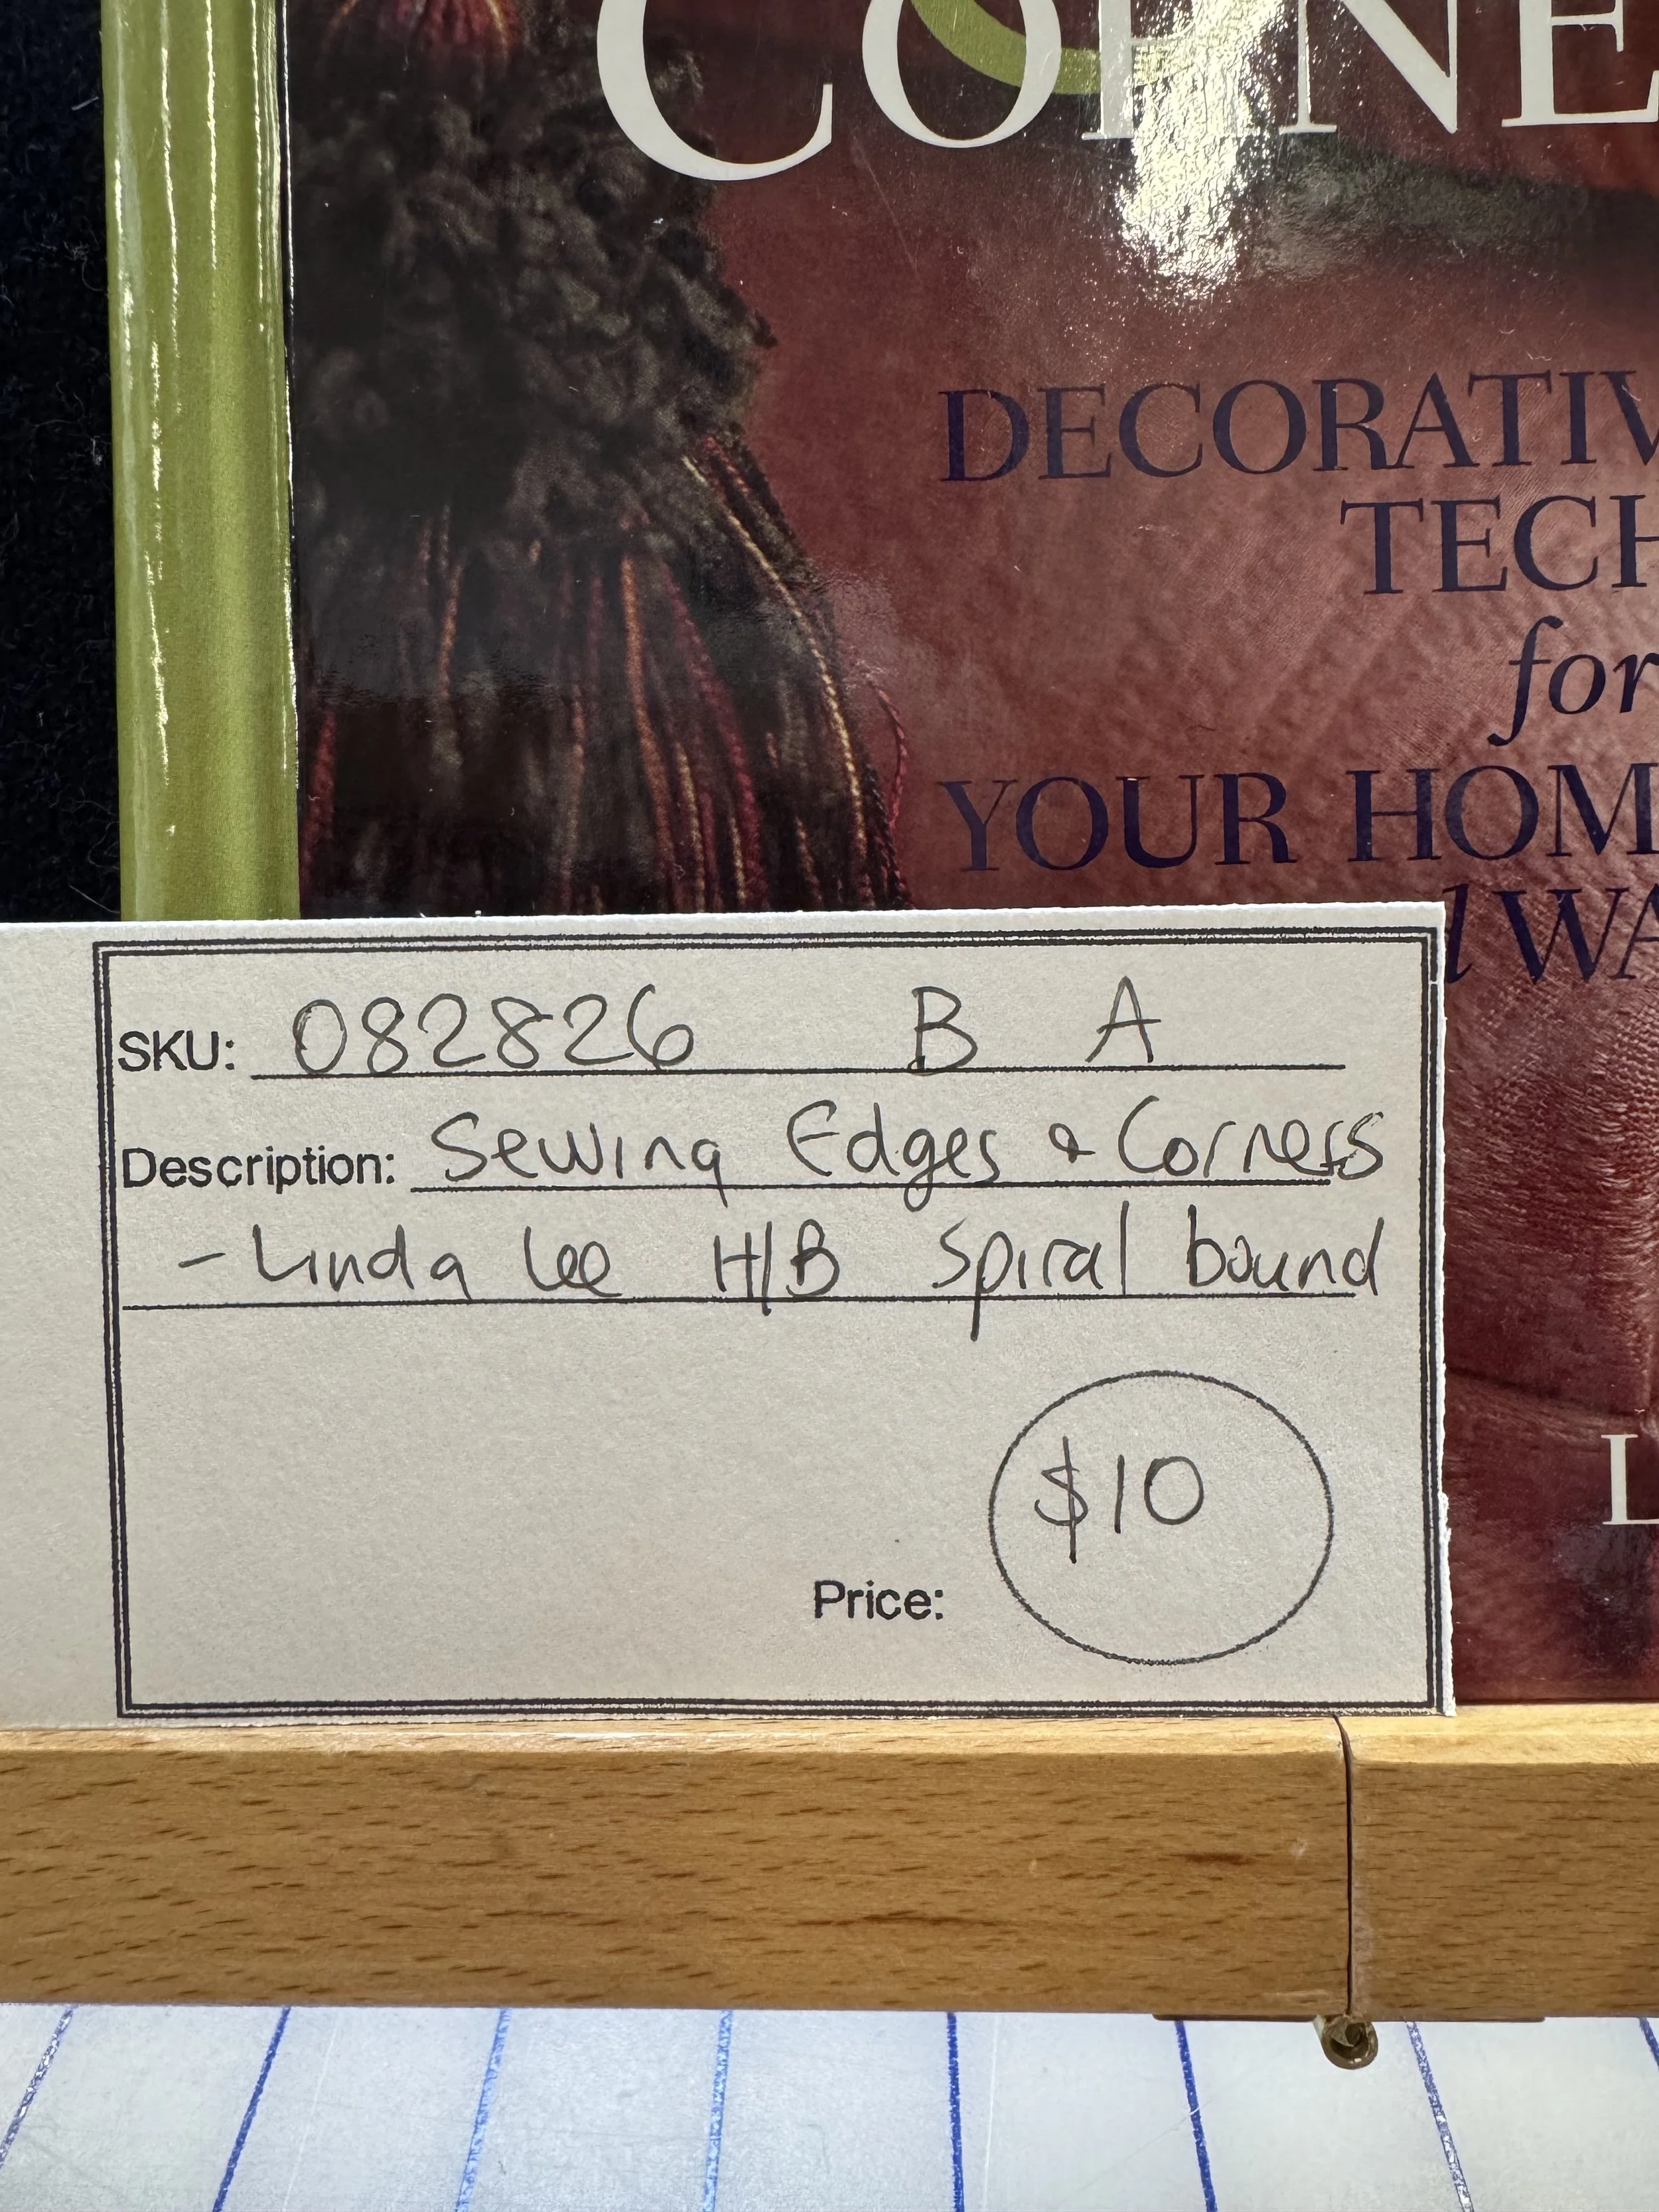 CORNE
DECORATIV
TECH
for
YOUR HOM
d WA
L
SKU: 082826 B A
Description: Sewing Edges & Corners
- Linda Lee H/B Spiral bound
$10
Price: